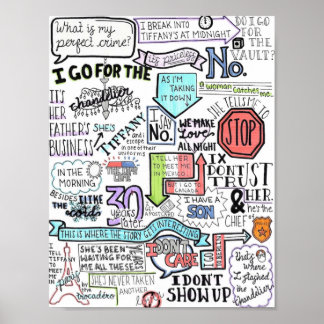 What is my
perfect crime?
I BREAK INTO
TIFFANY'S AT MIDNIGHT
DO I GO
FOR THE
VAULT?
it's priceless
NO.
I GO FOR THE
chandelier
AS I'M
TAKING
IT DOWN
a woman catches me
SHE TELLS ME TO
STOP
IT'S
HER
FATHER'S
BUSINESS
SHE'S
TIFFANY
I SAY
NO.
WE MAKE
love
ALL NIGHT
and
escape
in one of their
uniforms
I TELL HER
TO MEET ME
IN MEXICO
BUT I GO TO
CANADA
I DON'T
TRUST
HER.
IN THE
MORNING
BESIDES
I LIKE
THE
cold
30
YEARS
later
I GET A
POSTCARD
I HAVE A
SON
&
HE'S THE
CHIEF
THIS IS WHERE THE STORY GETS INTERESTING
I TELL
TIFFANY
TO MEET
ME IN
paris
by the
trocadero
SHE'S BEEN
WAITING FOR
ME ALL THESE
SHE'S NEVER TAKEN
another
I DON'T
CARE
I DON'T
SHOW UP
that's
where
I stashed
the
chandelier